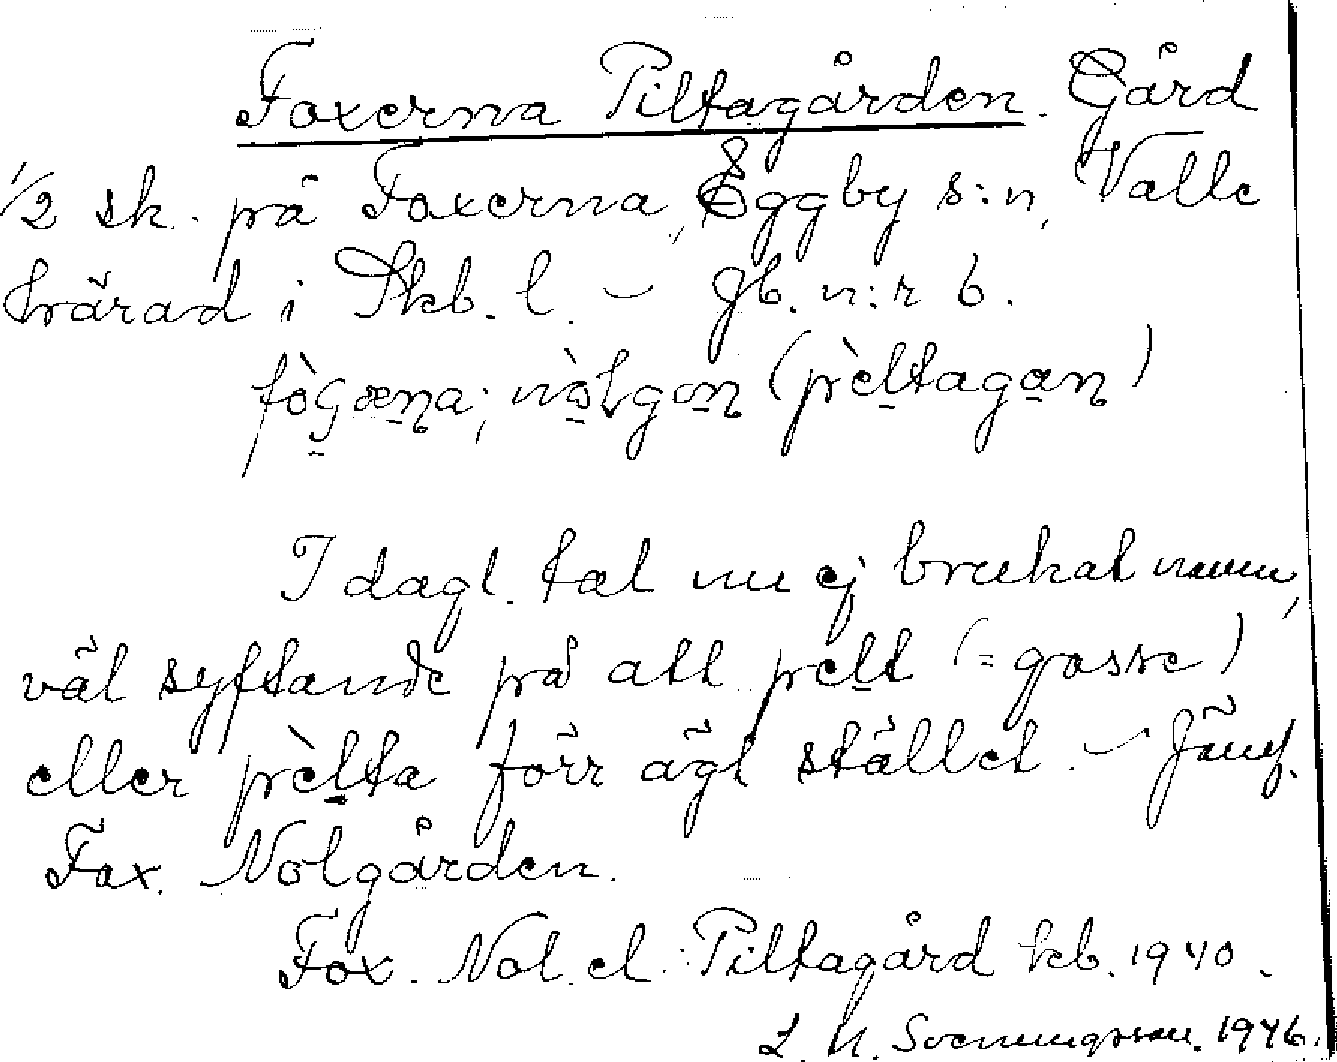 Foxerna Piltagården. Gård
1/2 sk. på Foxerna, Eggby s:n, Valle
härad i Skb. l. – Jb. n:r 6.
fòGæṉa; nòlgaṉ (pèltagaṉ)
I dagl. tal nu ej brukat namn,
väl syftande på att pelt (= gosse)
eller pèlta förr ägt stället. – Jämf.
Fox. Nolgården.
Fox. Nol. el. Piltagård kb. 1940.
S. 1946.